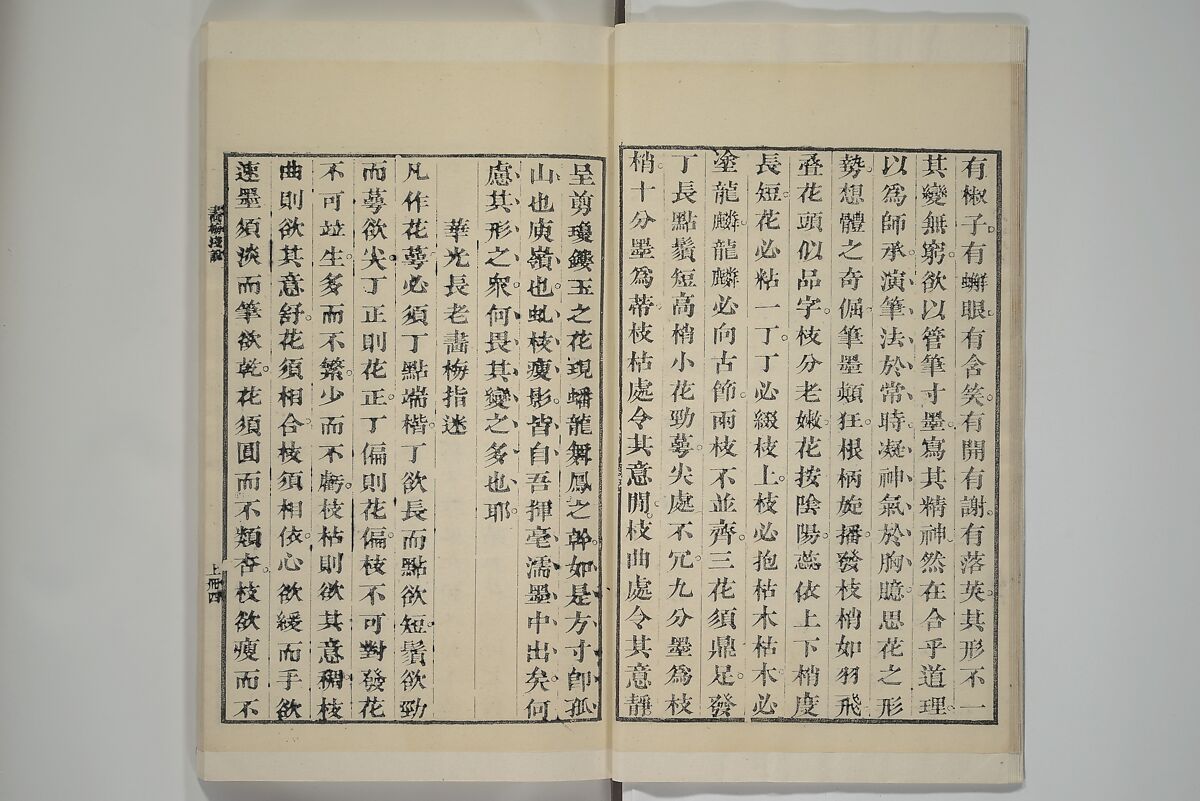 有椒子。有蠏眼。有含笑。有開有謝。有落英。其形不一
其變無窮。欲以管筆寸墨。寫其精神。然在合乎道理。
以爲師承。演筆法於常時。凝神氣於胸臆。思花之形
勢。想體之奇倔。筆墨顚狂。根柄旋播。發枝梢如羽飛。
叠花頭似品字。枝分老嫩。花按陰陽。蕊依上下。梢度
長短。花必粘一丁。丁必綴枝上。枝必抱枯木。枯木必
塗龍麟。龍麟必向古節。兩枝不並齊。三花須鼎足。發
丁長。點鬚短。高梢小花勁。萼尖處不冗。九分墨爲枝
梢。十分墨爲蒂。枝枯處令其意閒。枝曲處令其意靜
呈剪瓊鏤玉之花。現蟠龍舞鳳之幹。如是方寸卽孤
山也。庾嶺也。虬枝瘦影。皆自吾揮毫濡墨中出矣。何
慮其形之衆。何畏其變之多也耶。
華光長老畵梅指迷
凡作花萼。必須丁點端楷。丁欲長而點欲短。鬚欲勁
而萼欲尖。丁正則花正。丁偏則花偏。枝不可對發。花
不可竝生。多而不繁。少而不虧。枝枯則欲其意稠。枝
曲則欲其意舒。花須相合。枝須相依。心欲緩而手欲
速。墨須淡而筆欲乾。花須圓而不類杏。枝欲瘦而不
上冊四